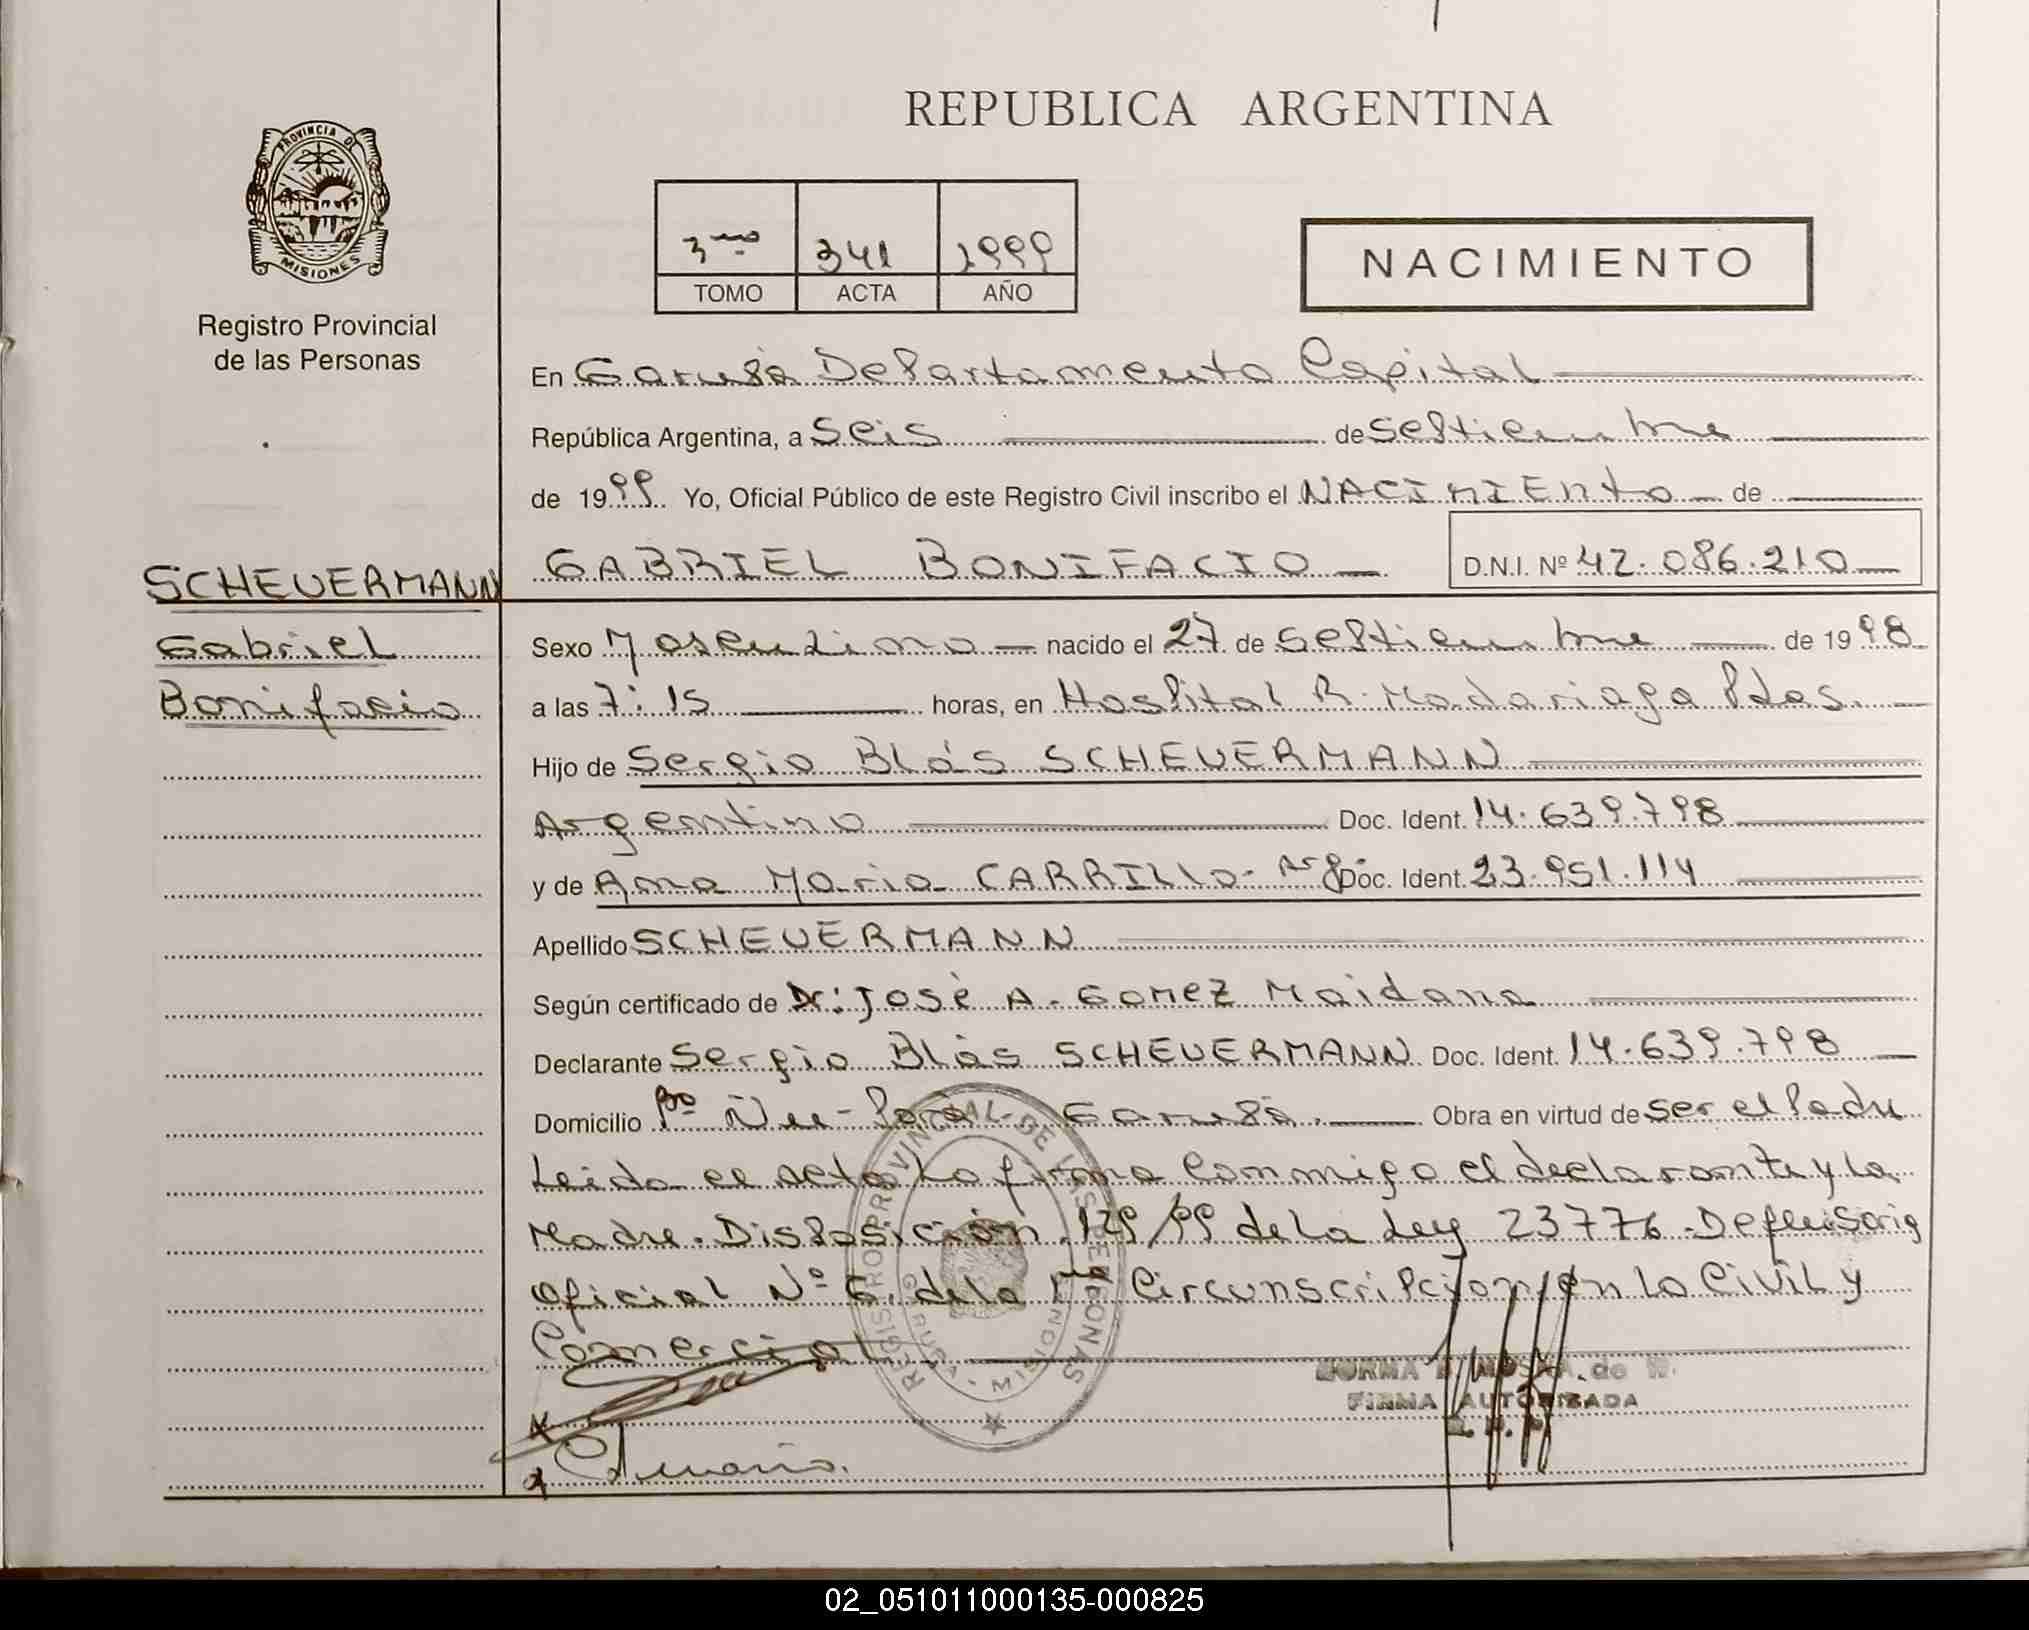 REPUBLICA ARGENTINA
PROVINCIA DE
MISIONES
Registro Provincial
de las Personas
3ro 341 1999
TOMO ACTA AÑO
NACIMIENTO
En Garupá Departamento Capital
República Argentina, a seis de septiembre
de 1999 Yo, Oficial Público de este Registro Civil inscribo el NACIMIENTO de
GABRIEL BONIFACIO D.N.I. Nº 42.086.210
SCHEUERMANN
Gabriel
Bonifacio
Sexo Masculino nacido el 27 de septiembre de 1998
a las 7:15 horas, en Hospital R. Madariaga Pdas.
Hijo de Sergio Blás SCHEUERMANN
Argentino Doc. Ident. 14.639.798
y de Ana Maria CARRILLO - Arg. Doc. Ident. 23.951.114
Apellido SCHEUERMANN
Según certificado de Dr: José A. GOMEZ Maidana
Declarante Sergio Blás SCHEUERMANN Doc. Ident. 14.639.798
Domicilio Bo Ñu-Porá Garupá. Obra en virtud de ser el Padre
Leida el acta La firma conmigo el declarante y La
Madre. Disposición 129/99 de la Ley 23776 - Defensoria
Oficial Nº 6 de la 1ra Circunscripción en Lo Civil y
Comercial
REGISTRO PROVINCIAL DE LAS PERSONAS
GARUPA - MISIONES
NORMA de
FIRMA AUTORIZADA
02_051011000135-000825